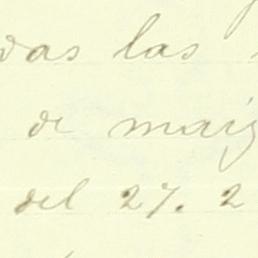 das las
de maiz
del 27. 2